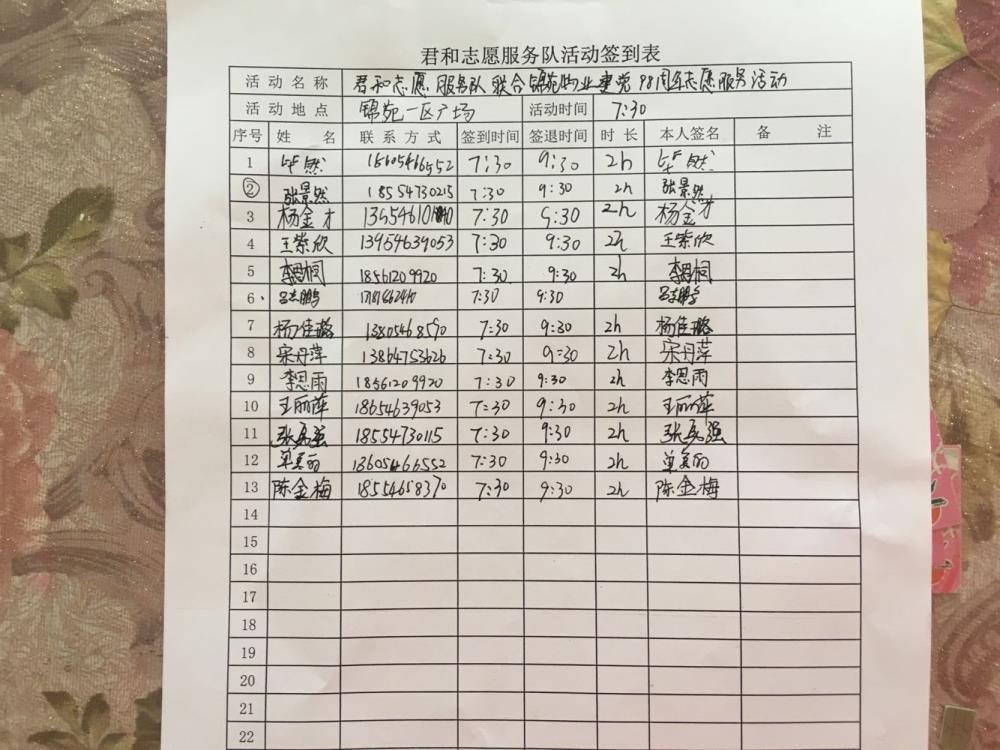 君和志愿服务队活动签到表
活动名称 君和志愿服务队联合锦苑物业建党98周年志愿服务活动
活动地点 锦苑一区广场 活动时间 7:30
序号 姓名 联系方式 签到时间 签退时间 时长 本人签名 备注
1 毕然 18605466552 7:30 9:30 2h 毕然
2 张景然 18554730215 7:30 9:30 2h 张景然
3 杨金才 7:30 9:30 2h 杨金才
4 王紫欣 13954639053 7:30 9:30 2h 王紫欣
5 李思桐 18561209920 7:30 9:30 2h 李思桐
6 吕志鹏 7:30 9:30 吕志鹏
7 杨佳璐 13805468590 7:30 9:30 2h 杨佳璐
8 宋丹萍 13864753626 7:30 9:30 2h 宋丹萍
9 李思雨 18561209920 7:30 9:30 2h 李思雨
10 王丽萍 18654639053 7:30 9:30 2h 王丽萍
11 18554730115 7:30 9:30 2h
12 单美丽 18605466552 7:30 9:30 2h 单美丽
13 陈金梅 18554658370 7:30 9:30 2h 陈金梅
14
15
16
17
18
19
20
21
22